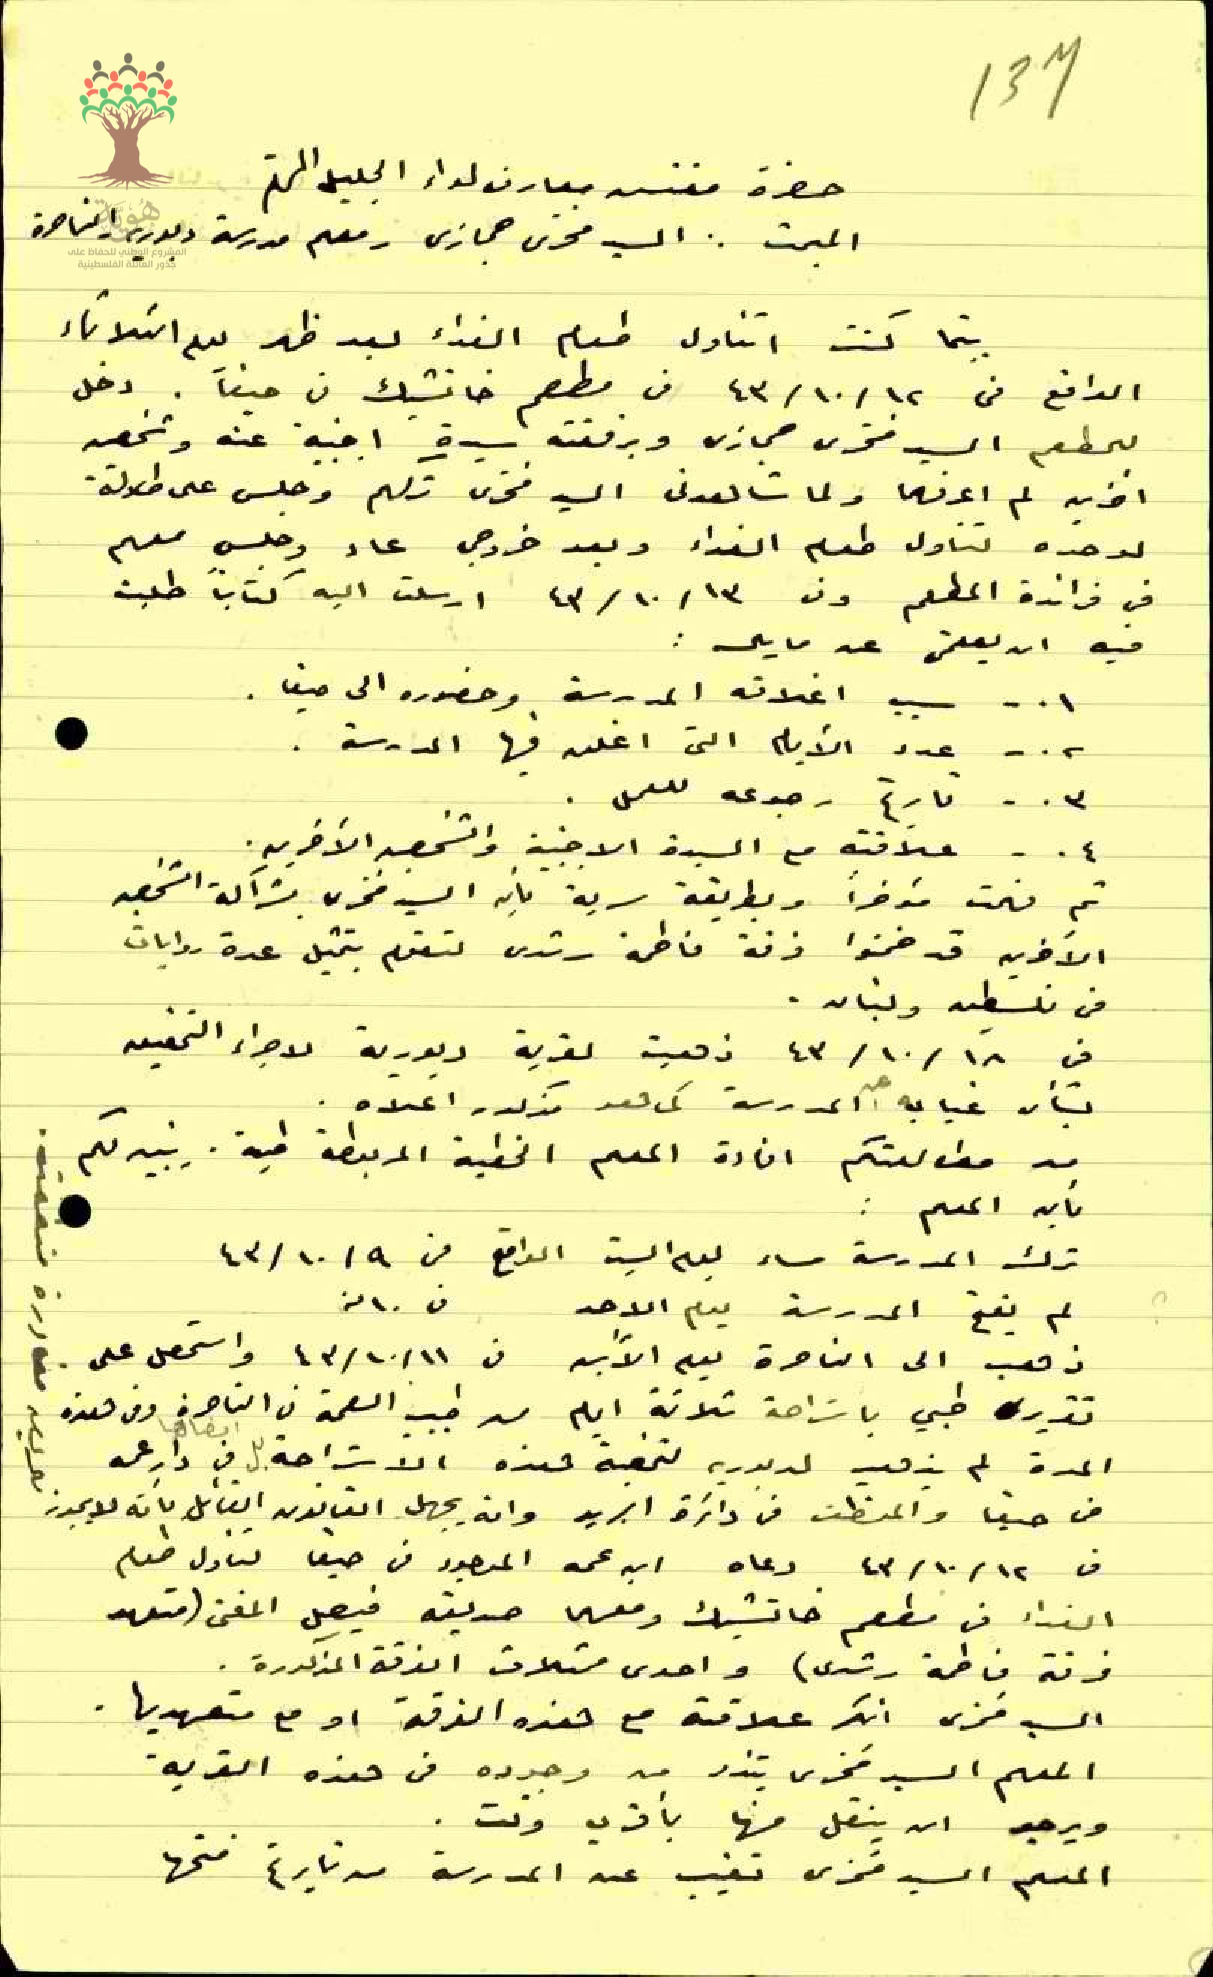 137
هوية
المشروع الوطني للحفاظ على
جذور العائلة الفلسطينية
حضرة مفتش معارف لواء الجليل المحترم
المبحث : السيد فخري حجازي معلم مدرسة دبورية الناصرة
بينما كنت اتناول طعام الغداء بعد ظهر يوم الثلاثاء
الواقع في ١٢/١٠/٤٣ في مطعم خانشيك في حيفا . دخل
للمطعم السيد فخري حجازي وبرفقته سيدة اجنبية عنه وشخصين
اخرين لم اعرفهما ولما شاهدني السيد فخري تركهم وجلس على طاولة
لوحده لتناول طعام الغداء وبعد خروجي عاد وجلس معهم
في فراندة المطعم وفي ١٣/١٠/٤٣ ارسلت اليه كتاباً طلبت
فيه ان يعلمني عن ما يلي :
١ - سبب اغلاقه المدرسة وحضوره الى حيفا .
٢ - عدد الأيام التي اغلق فيها المدرسة .
٣ - تاريخ رجوعه للعمل .
٤ - علاقته مع السيدة الاجنبية والشخصين الآخرين .
ثم فهمت مؤخراً وبطريقة سرية بأن السيد فخري بشراكة الشخصين
الآخرين قد ضمنوا فرقة فاطمة رشدي لتقوم بتمثيل عدة روايات
في فلسطين ولبنان .
في ١٨/١٠/٤٣ ذهبت لقرية دبورية لاجراء التحقيق
بشأن غيابه عن المدرسة كما هو مذكور اعلاه .
من مطالعتكم افادة المعلم الخطية المربوطة طيه . يتبين لكم
بأن المعلم :
ترك المدرسة مساء يوم السبت الواقع في ٩/١٠/٤٣
لم يفتح المدرسة يوم الاحد في ١٠ منه
ذهب الى الناصرة يوم الأثنين في ١١/١٠/٤٣ واستحصل على
تقرير طبي باستراحة ثلاثة ايام من طبيب الصحة في الناصرة وفي هذه
المدة لم يذهب لدبورية لتمضية هذه الاستراحة بل امضاها في دار عمه
في حيفا والموظف في دائرة البريد وانه يجهل القانون القائل بأنه لا يجوز
في ١٢/١٠/٤٣ دعاه ابن عمه الموجود في حيفا لتناول طعام
الغداء في مطعم خانشيك ومعهما صديقه فيصل المفتي (متعهد
فرقة فاطمة رشدي) واحدى ممثلات الفرقة المذكورة .
السيد فخري انكر علاقته مع هذه الفرقة او مع متعهديها .
المعلم السيد فخري يتذمر من وجوده في هذه القرية
ويرجو ان ينقل منها بأقرب وقت .
المعلم السيد فخري تغيب عن المدرسة من تاريخ فتحها